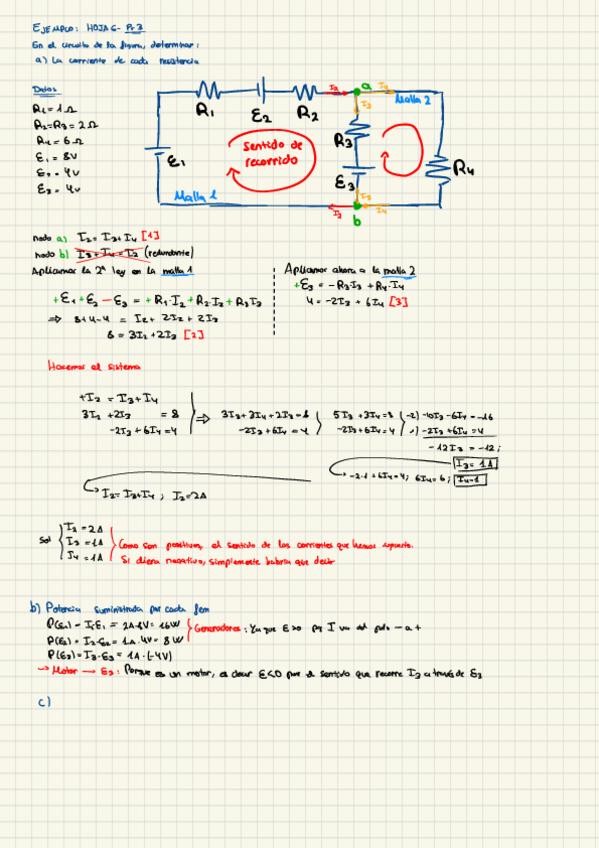 EJEMPLO: HOJA 6- Pr 3
En el circuito de la figura, determinar:
a) La corriente de cada resistencia
Datos
R1=1Ω
R2=R3=2Ω
R4=6Ω
ε1=8V
ε2=4V
ε3=4V
R1
ε2
R2
I2
a
I4
Malla 2
I3
R3
ε1
Sentido de
recorrido
ε3
R4
Malla 1
I2
I3
I4
b
nodo a) I2=I3+I4 [1]
nodo b) I3+I4=I2 (redundante)
Aplicamos la 2ª ley en la malla 1
+ε1+ε2-ε3=+R1·I2+R2·I2+R3I3
⇒ 8+4-4=I2+2I2+2I3
8=3I2+2I3 [2]
Aplicamos ahora a la malla 2
+ε3=-R3I3+R4·I4
4=-2I3+6I4 [3]
Hacemos el sistema
+I2=I3+I4
3I2+2I3=8
-2I3+6I4=4
⇒ 3I3+3I4+2I3=8
-2I3+6I4=4
5I3+3I4=8
-2I3+6I4=4
·(-2) -10I3-6I4=-16
-2I3+6I4=4
-12I3=-12;
I3=1A
-2·1+6I4=4; 6I4=6; I4=1
I2=I3+I4; I2=2A
Sol
I2=2A
I3=1A
I4=1A
Como son positivos, el sentido de las corrientes que hemos supuesto.
Si diera negativo, simplemente habría que decir
b) Potencia suministrada por cada fem
P(ε1)=I2·ε1=2A·8V=16W
P(ε2)=I2·ε2=2A·4V=8W
Generadores: Ya que ε>0 pq I va del polo - a +
P(ε3)=I3·ε3=1A·(-4V)
→ Motor → ε3: Porque es un motor, es decir ε<0 por el sentido que recorre I3 a través de ε3
c)